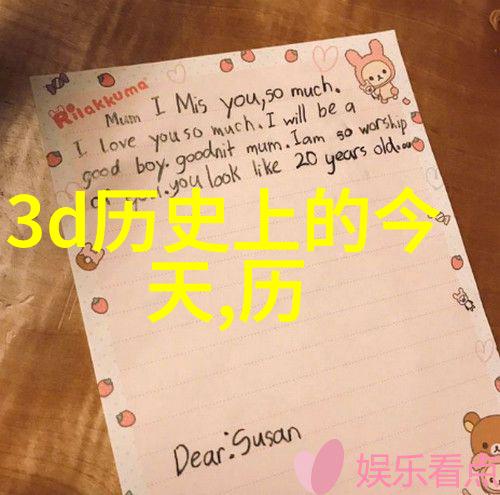 Rilakkuma
Mum I Mis you,so much.
I love you so much. I will be a
good boy. goodnit mum. I am so worship
you look like 20 years old.
3d历史上的今
天,历
Dear:Susan
娱乐看点